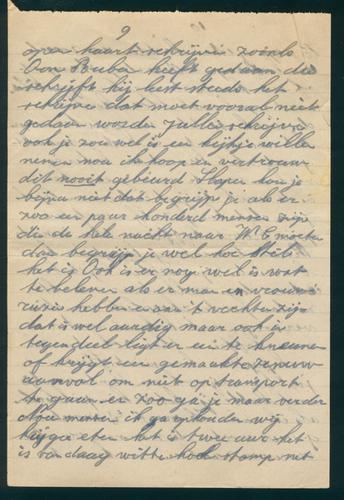 9
open kaart schrijven zooals
Oom Ruben heeft gedaan die
schrijft hij leest steeds het
schrijven dat moet vooral niet
gedaan worden Jullie schrijven
ook je zou wel is een kijkje willen
nemen nou ik hoop en vertrouw
dit nooit gebeurd Slapen kon je
bijna niet dat begrijp je als er
zoo een paar honderd menschen zijn
die de hele nacht naar W.C. moeten
dan begrijp je wel hoe stil
het is Ook is er nog wel is wat
te beleven als er man en vrouw
ruzie hebben en aan 't vechten zijn
dat is wel aardig maar ook in
tegendeel ligt er een te kreunen
of krijgt een gemaakte zenuw
aanval om niet op transport
te gaan en zoo ga je maar verder
menschen ik ga ophouden wij
krijgen eten het is twee uur het
is vandaag witte kool stamp met